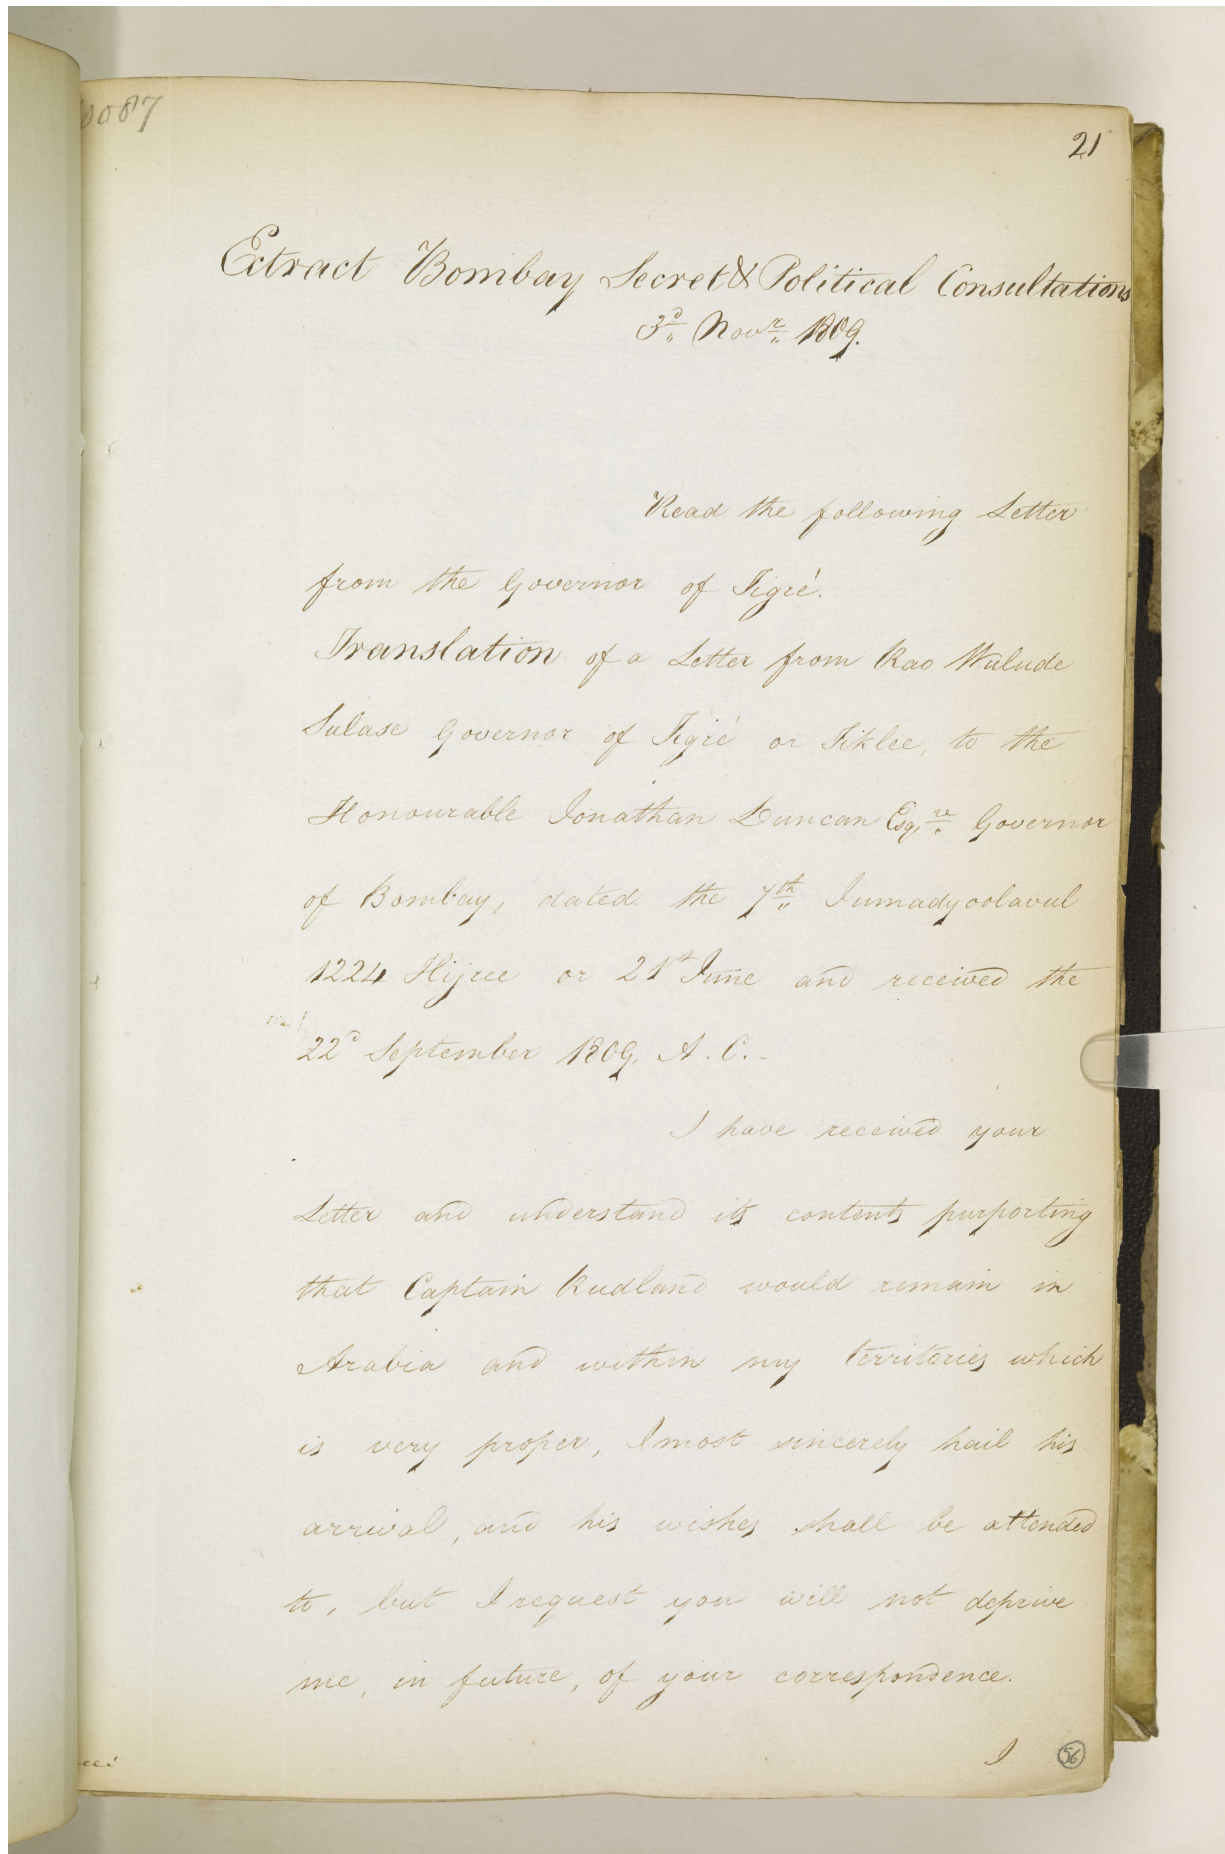 0087
21
Extract Bombay Secret & Political Consultations
3d Novr 1809.
Read the following Letter
from the Governor of Tigré.
Translation of a Letter from Rao Wulude
Sulase Governor of Tigré or Tiklee, to the
Honourable Jonathan Duncan Esqre Governor
of Bombay, dated the 7th Jumadyoolavul
1224 Hijree or 21st June and received the
22d September 1809, A. C. -
I have received your
Letter and understand its contents purporting
that Captain Rudland would remain in
Arabia and within my territories which
is very proper, I most sincerely hail his
arrival, and his wishes shall be attended
to, but I request you will not deprive
me, in future, of your correspondence.
I
56